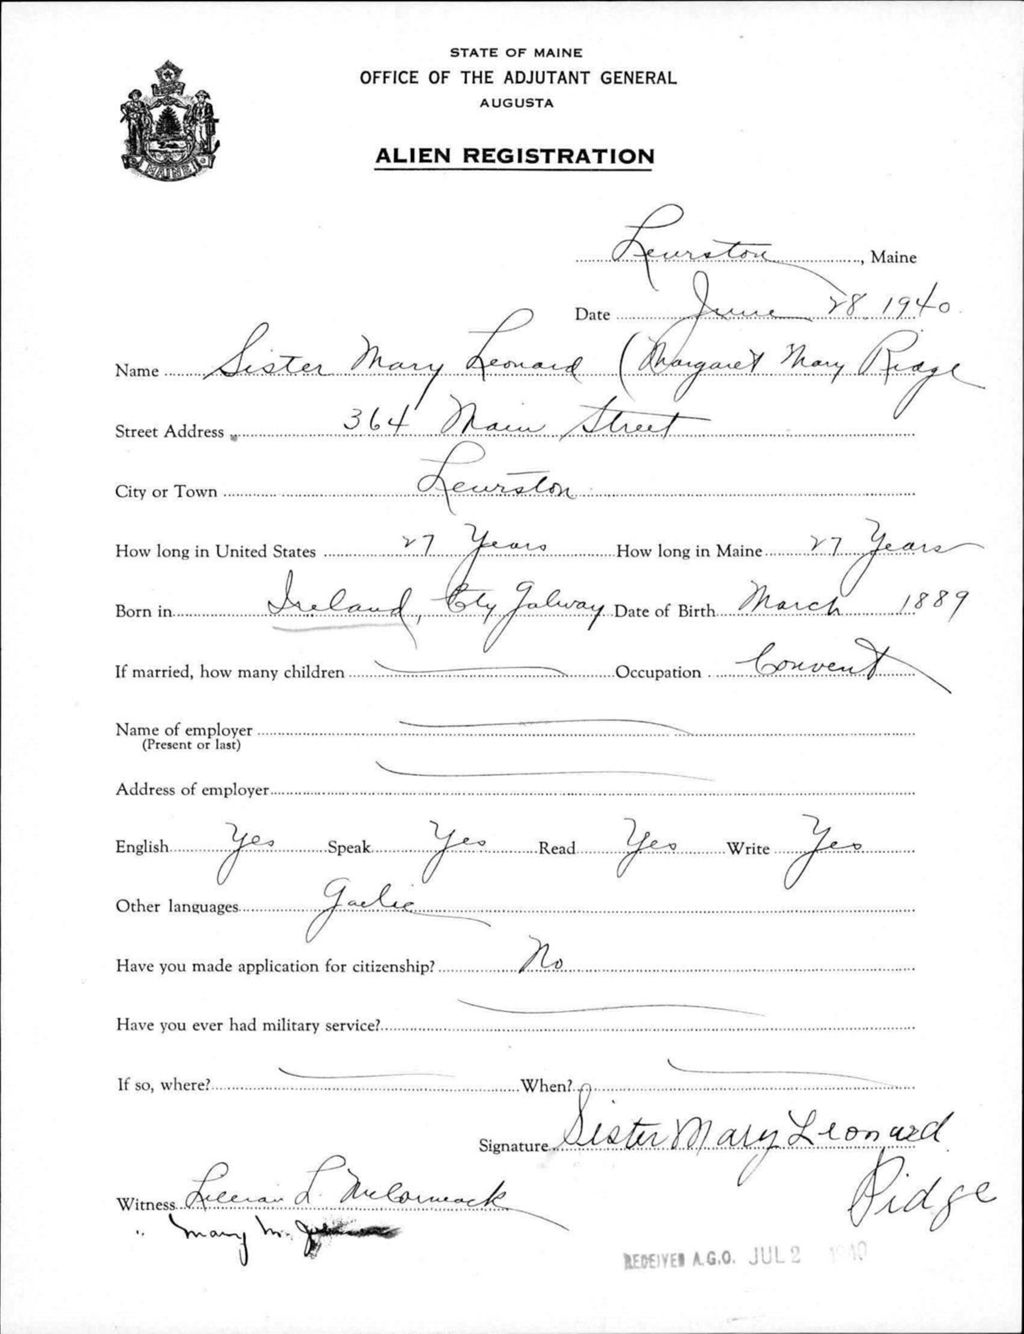 STATE OF MAINE
OFFICE OF THE ADJUTANT GENERAL
AUGUSTA
ALIEN REGISTRATION
MAINE
Lewiston, Maine
Date June 28, 1940
Name Sister Mary Leonard (Margaret Mary Ridge
Street Address 364 Main Street
City or Town Lewiston
How long in United States 27 Years How long in Maine 27 Years
Born in Ireland, Cty Galway Date of Birth March 1889
If married, how many children Occupation Convent
Name of employer
(Present or last)
Address of employer
English Yes Speak Yes Read Yes Write Yes
Other languages Gaelic
Have you made application for citizenship? No
Have you ever had military service?
If so, where? When?
Signature Sister Mary Leonard
Ridge
Witness Lillian L. McCormack
" Mary M.
RECEIVED A.G.O. JUL 2 1940